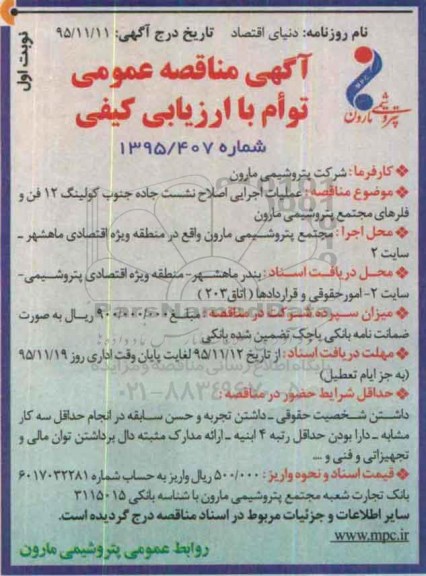 نام روزنامه: دنیای اقتصاد تاریخ درج آگهی: ۹۵/۱۱/۱۱
نوبت اول
آگهی مناقصه عمومی
توأم با ارزیابی کیفی
شماره ۱۳۹۵/۴۰۷
MPC
پتروشیمی مارون
❖ کارفرما: شرکت پتروشیمی مارون
❖ موضوع مناقصه: عملیات اجرایی اصلاح نشست جاده جنوب کولینگ ۱۲ فن و
فلرهای مجتمع پتروشیمی مارون
❖ محل اجرا: مجتمع پتروشیمی مارون واقع در منطقه ویژه اقتصادی ماهشهر -
سایت ۲
❖ محل دریافت اسناد: بندر ماهشهر- منطقه ویژه اقتصادی پتروشیمی-
سایت ۲- امور حقوقی و قراردادها (اتاق ۲۰۳)
❖ میزان سپرده شرکت در مناقصه: مبلغ ۹۰۰/۰۰۰/۰۰۰ ریال به صورت
ضمانت نامه بانکی یا چک تضمین شده بانکی
❖ مهلت دریافت اسناد: از تاریخ ۹۵/۱۱/۱۲ لغایت پایان وقت اداری روز ۹۵/۱۱/۱۹
(به جز ایام تعطیل)
❖ حداقل شرایط حضور در مناقصه:
داشتن شخصیت حقوقی - داشتن تجربه و حسن سابقه در انجام حداقل سه کار
مشابه - دارا بودن حداقل رتبه ۴ ابنیه - ارائه مدارک مثبته دال بر داشتن توان مالی و
تجهیزاتی و فنی و ....
❖ قیمت اسناد و نحوه واریز: ۵۰۰/۰۰۰ ریال واریز به حساب شماره ۶۰۱۷۰۳۲۲۸۱
بانک تجارت شعبه مجتمع پتروشیمی مارون با شناسه بانکی ۳۱۱۵۰۱۵
سایر اطلاعات و جزئیات مربوط در اسناد مناقصه درج گردیده است.
www.mpc.ir
روابط عمومی پتروشیمی مارون